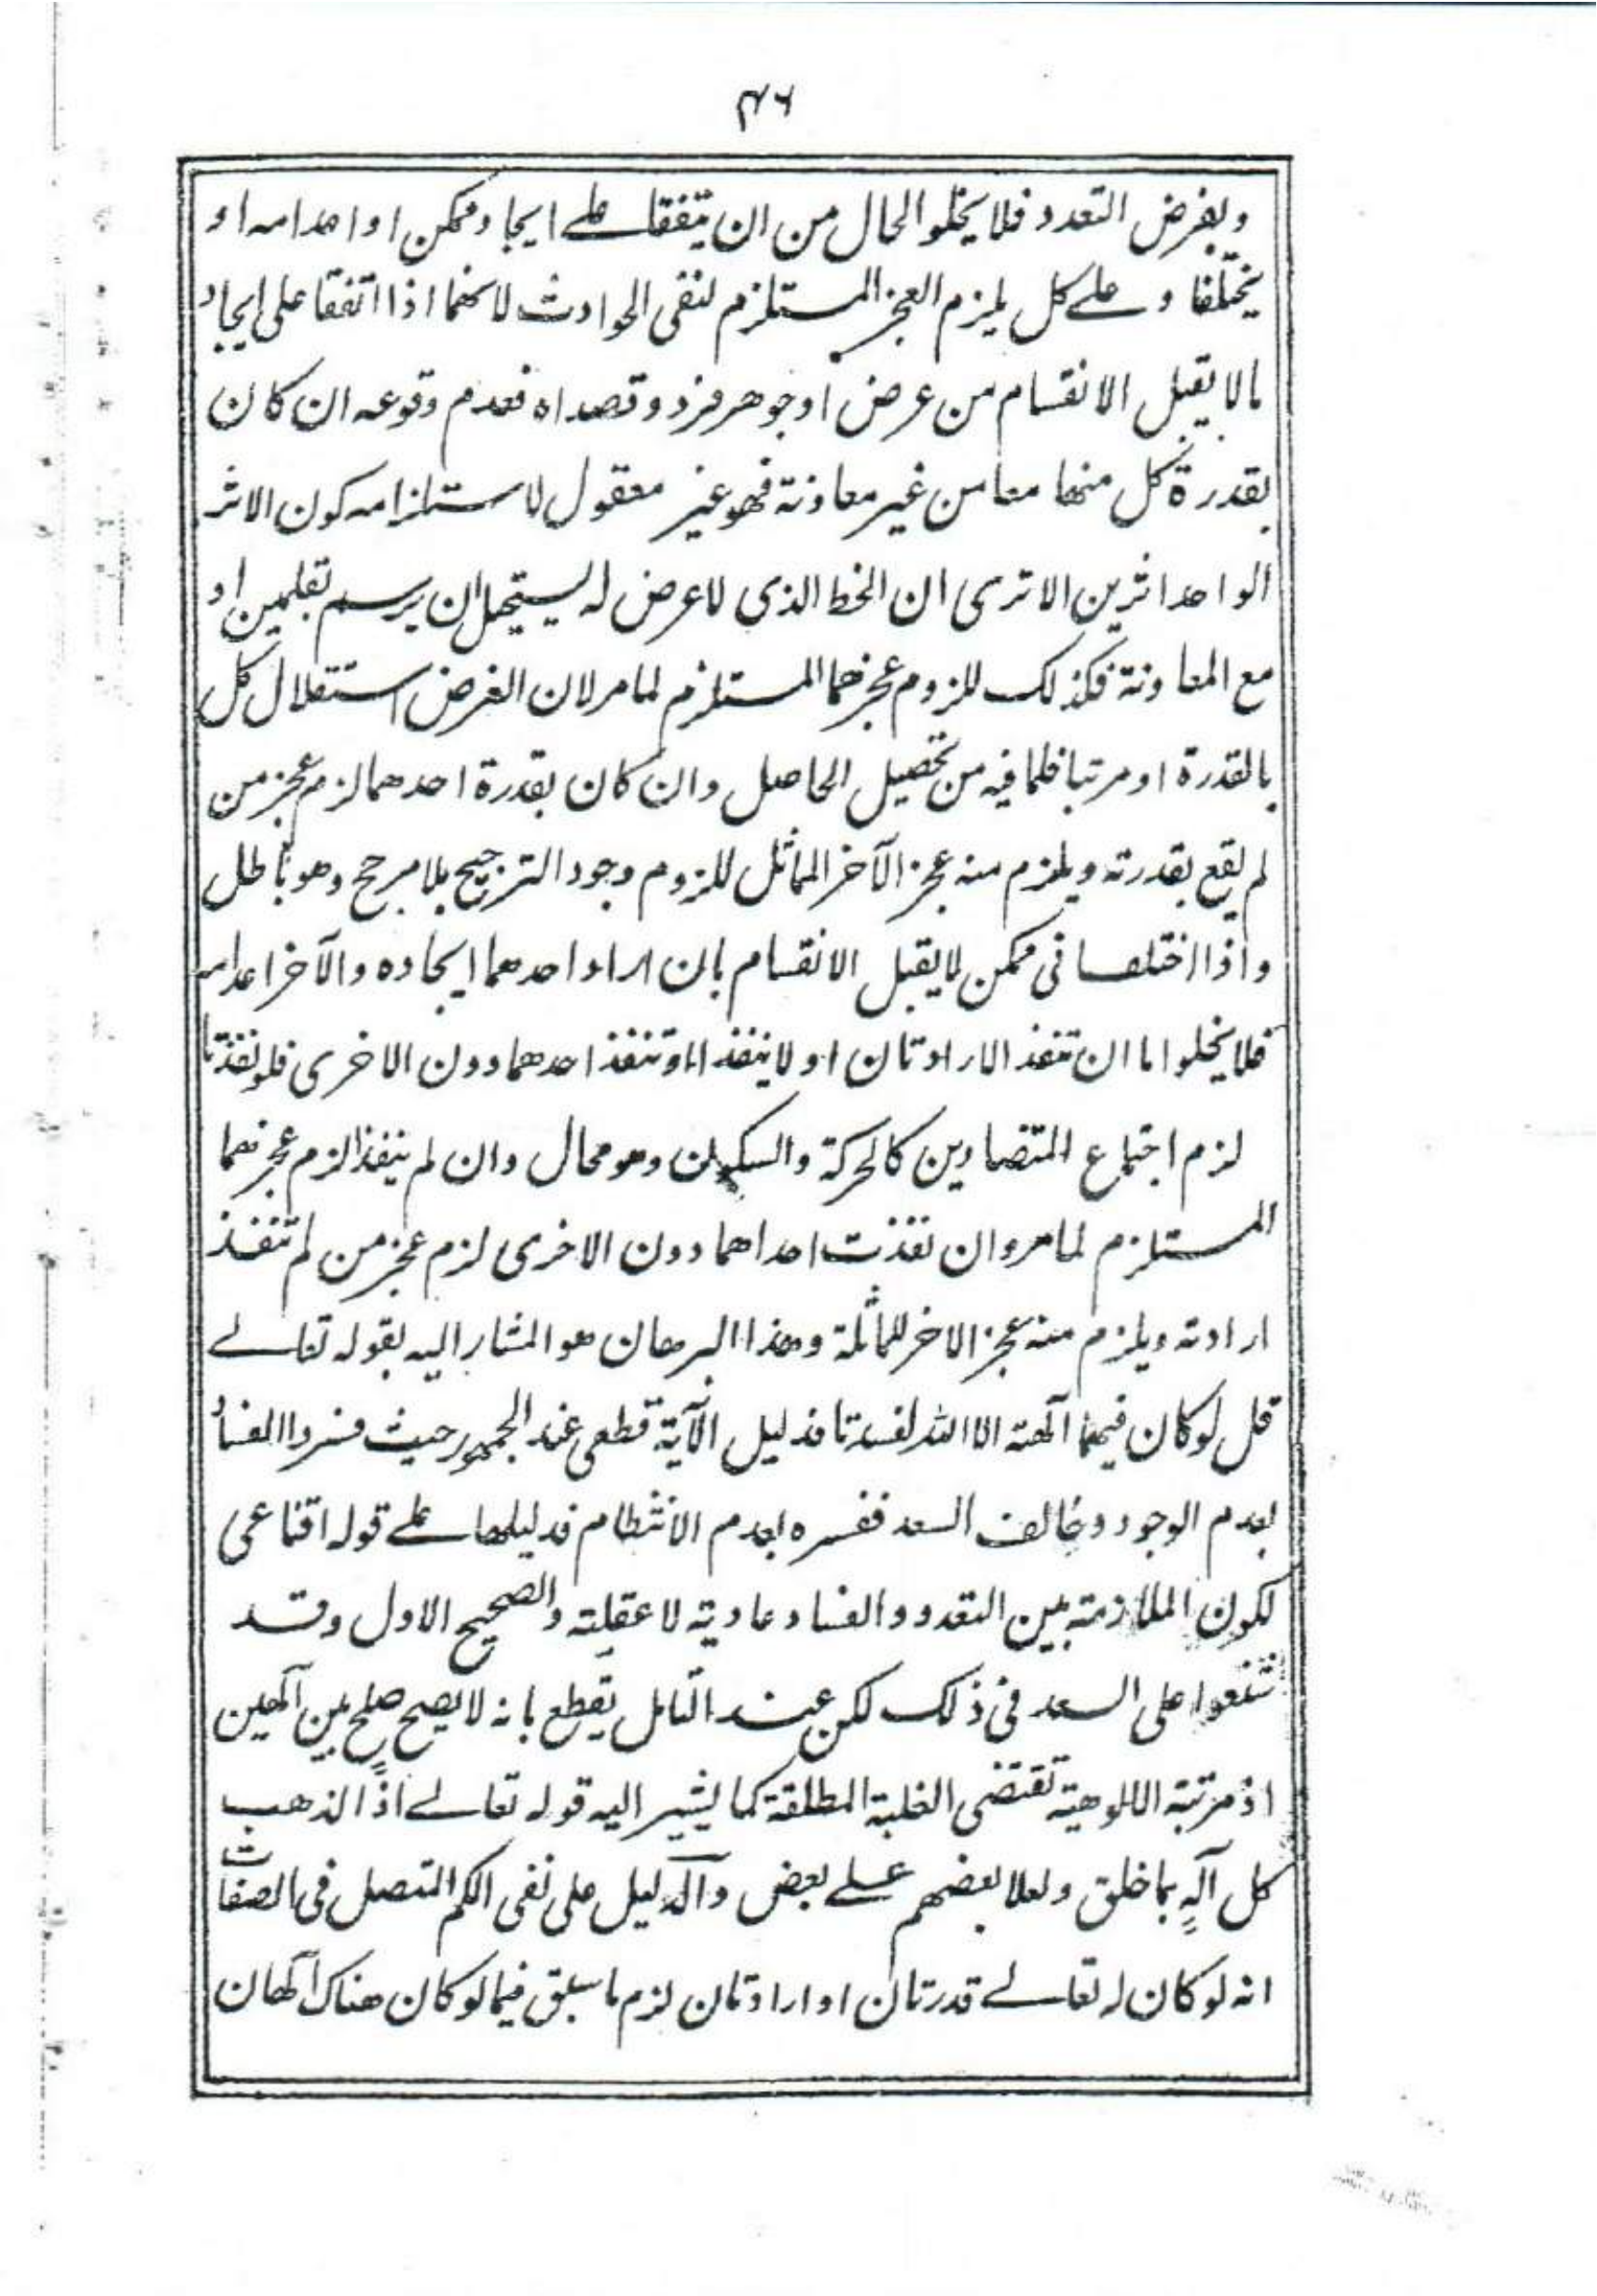 ٣٤٦
وبفرض التعدد فلا يخلو الحال من ان يتفقا على ايجاد ممكن او اعدامه او
يختلفا وعلى كل يلزم العجز المستلزم لنفى الحوادث لانهما اذا اتفقا على ايجاد
مالا يقبل الانقسام من عرض او جوهر فرد وقصداه فعدم وقوعه ان كان
بقدرة كل منهما معا من غير معاونة فهو غير معقول لاستلزامه كون الاثر
الواحد اثرين الا ترى ان الخط الذى لا عرض له يستحيل ان يرسم بقلمين او
مع المعاونة فكذلك للزوم عجزهما المستلزم لما مر لان الفرض استقلال كل
بالقدرة او مرتبا فلما فيه من تحصيل الحاصل وان كان بقدرة احدهما لزم عجز من
لم يقع بقدرته ويلزم منه عجز الآخر المماثل للزوم وجود الترجيح بلا مرجح وهو باطل
واذا اختلفا فى ممكن لا يقبل الانقسام بان اراد احدهما ايجاده والآخر اعدامه
فلا يخلو اما ان تنفذ الارادتان او لا ينفذا او تنفذ احدهما دون الاخرى فلو نفذتا
لزم اجتماع المتضادين كالحركة والسكون وهو محال وان لم ينفذا لزم عجزهما
المستلزم لما مر وان نفذت احداهما دون الاخرى لزم عجز من لم تنفذ
ارادته ويلزم منه عجز الاخر للمماثلة وهذا البرهان هو المشار اليه بقوله تعالى
قل لو كان فيهما آلهة الا الله لفسدتا فدليل الآية قطعى عند الجمهور حيث فسروا الفساد
بعدم الوجود وخالف السعد ففسره بعدم الانتظام فدليلها على قوله اقناعى
لكون الملازمة بين التعدد والفساد عادية لا عقلية والصحيح الاول وقد
شنعوا على السعد فى ذلك لكن عند التامل يقطع بانه لا يصح صلح بين آلهين
اذ مرتبة الالوهية تقتضى الغلبة المطلقة كما يشير اليه قوله تعالى اذًا لذهب
كل آلهٍ بما خلق ولعلا بعضهم على بعض والدليل على نفى الكم المتصل فى الصفات
انه لو كان له تعالى قدرتان او ارادتان لزم ما سبق فيما لو كان هناك آلهان